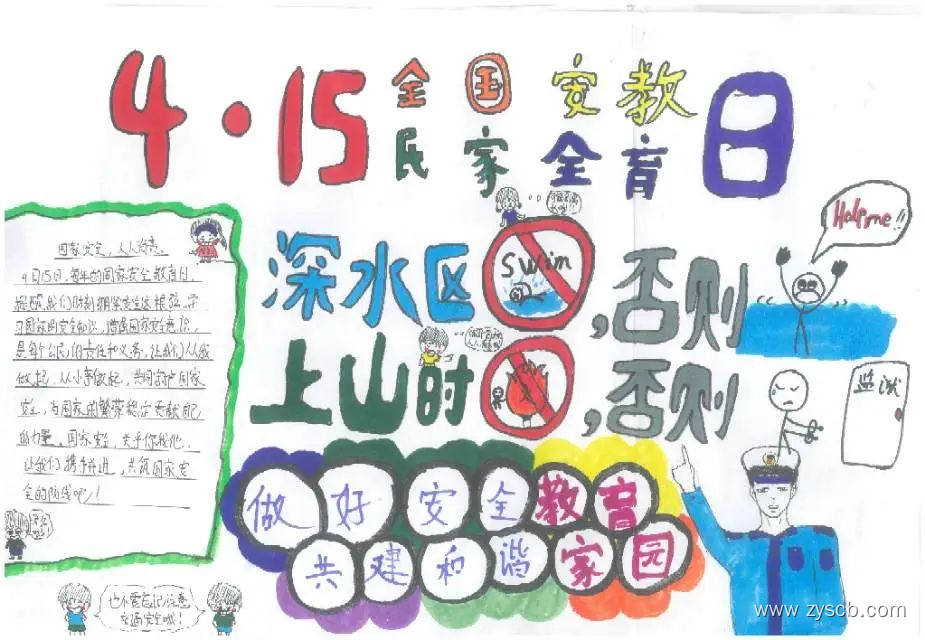 4·15 全国安教日
民家全育
深水区 swim ,否则
Help me!!
上山时 ,否则
监狱
国家安全,人人有责。
4月15日,每年的国家安全教育日,
提醒我们时刻绷紧安全这根弦。学
习国家安全知识,增强国家安全意识,
是每个公民的责任和义务,让我们从我
做起,从小事做起,共同守护国家
安全,为国家的繁荣稳定贡献自己
的力量。国家安全,关乎你我他,
让我们携手并进,共筑国家安
全的防线吧!
做好安全教育
共建和谐家园
也不要忘记注意
交通安全哦!
www.zyscb.com